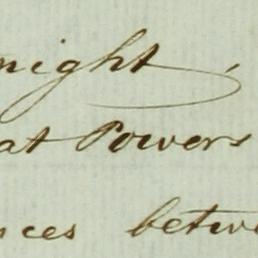 night,
at Powers
nces betwe